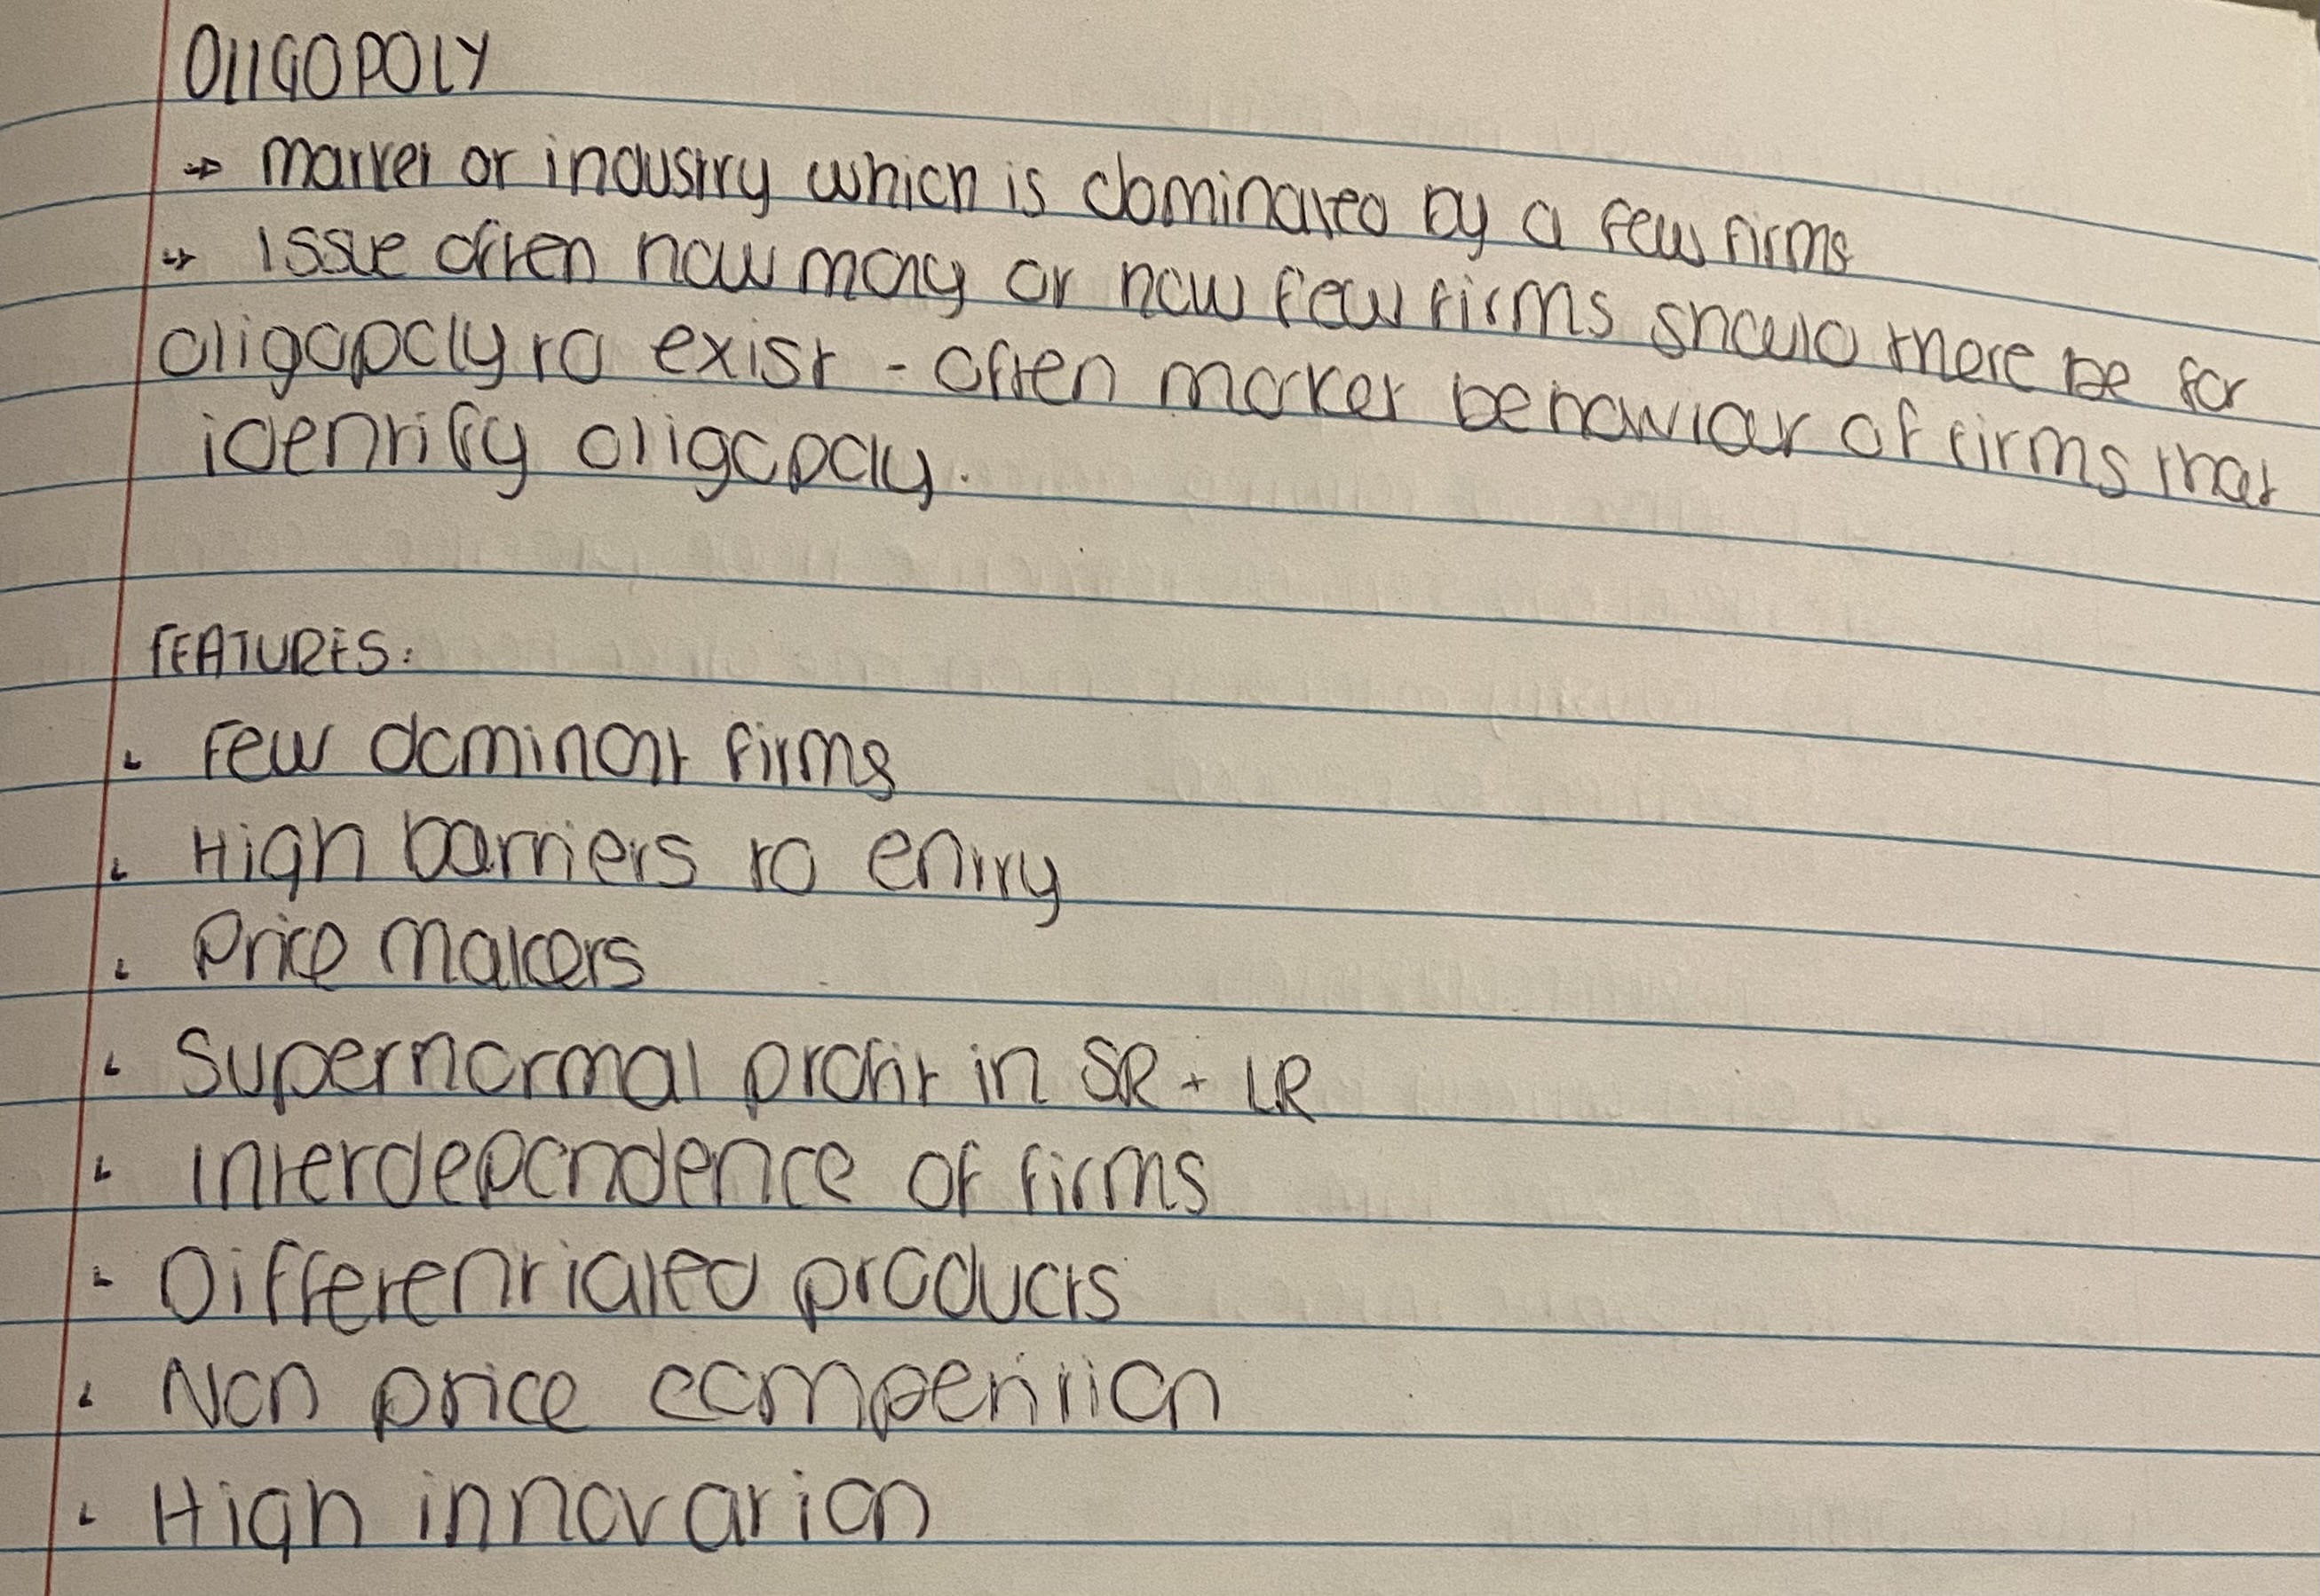 OLIGOPOLY
→ market or industry which is dominated by a few firms
→ issue often how many or how few firms should there be for
oligopoly to exist - often market behaviour of firms that
identify oligopoly.
FEATURES:
• Few dominant firms
• High barriers to entry
• Price Makers
• Supernormal profit in SR + LR
• Interdependence of firms
• Differentiated products
• Non price competition
• High innovation